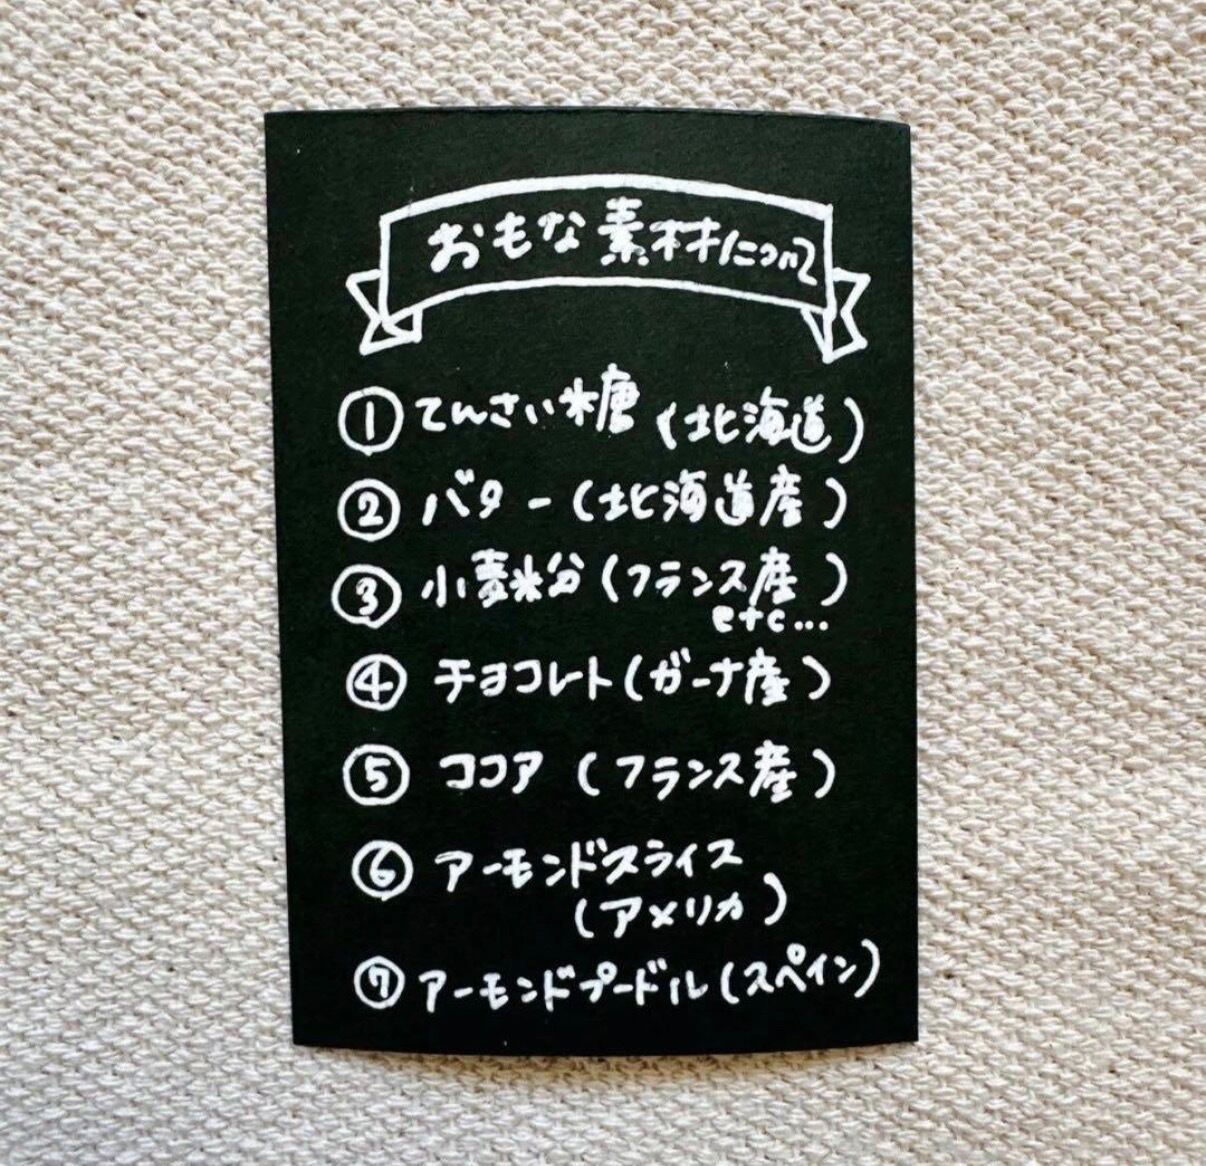 おもな素材について
① てんさい糖 (北海道)
② バター (北海道産)
③ 小麦粉 (フランス産)
etc...
④ チョコレート (ガーナ産)
⑤ ココア (フランス産)
⑥ アーモンドスライス
(アメリカ)
⑦ アーモンドプードル (スペイン)